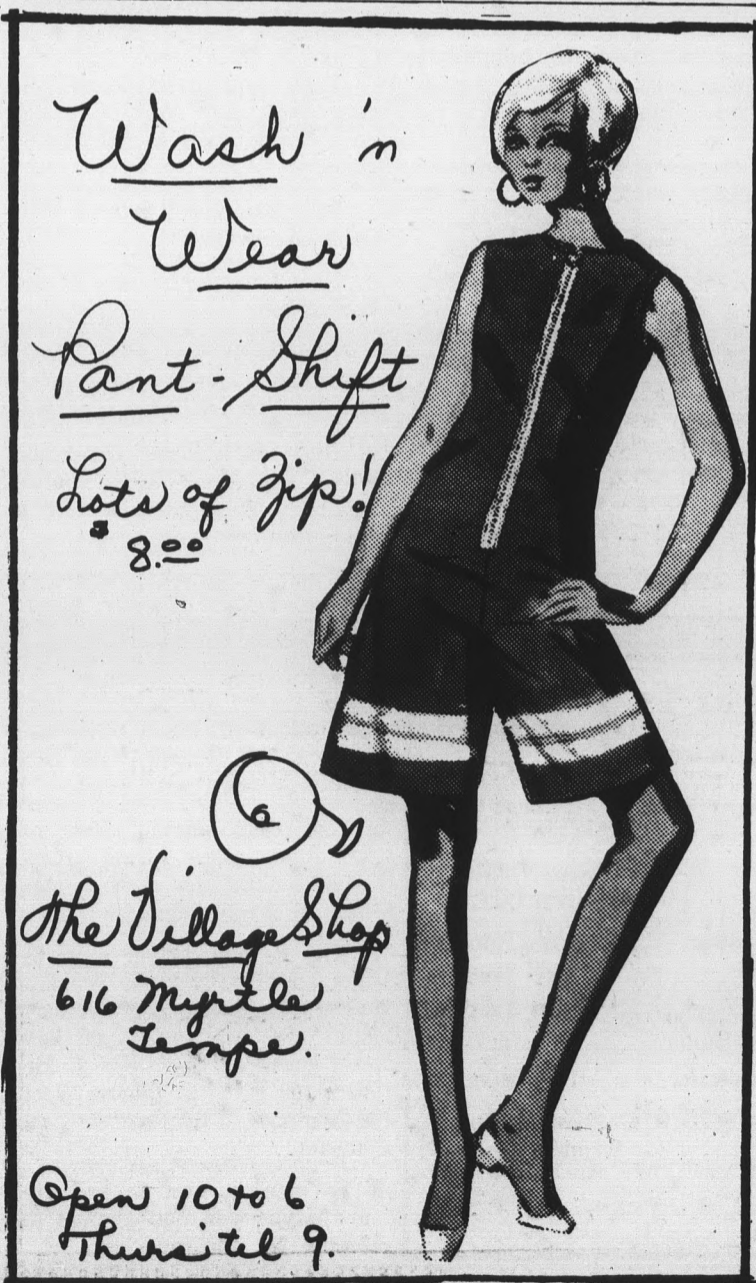 Wash 'n
Wear
Pant-Shift
Lots of Zip!
$8.00
The Village Shop
616 Myrtle
Tempe.
Open 10 to 6
Thurs til 9.